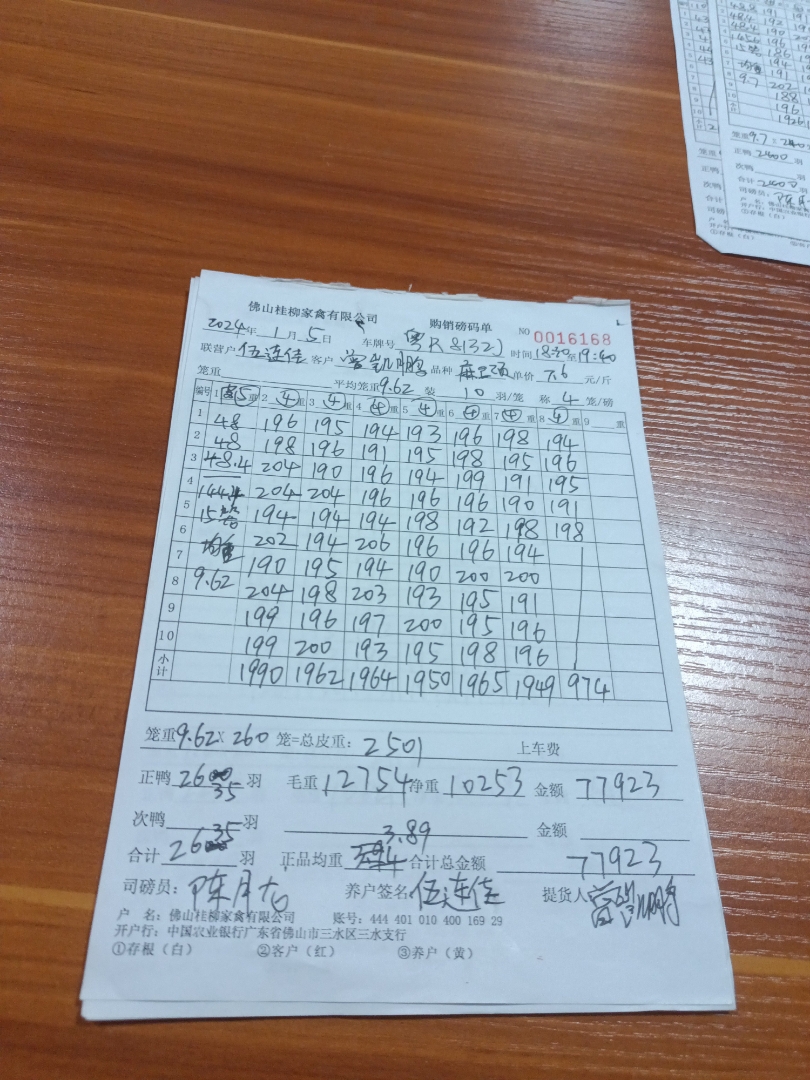 佛山桂柳家禽有限公司 购销磅码单 NO 0016168
2024年 1月 5日 车牌号 粤R 81321 时间 18:20至19:40
联营户 伍连佳 客户 品种 单价 7.6 元/斤
笼重 平均笼重 9.62 装 10 羽/笼 称 4 笼/磅
编号 1 ⑤ 重 2 ④ 重 3 ④ 重 4 ④ 重 5 ④ 重 6 ④ 重 7 ④ 重 8 ④ 重 9 重
1 48 196 195 194 193 196 198 194
2 48 198 196 191 195 198 195 196
3 48.4 204 190 196 194 199 191 195
4 144.4 204 204 196 196 196 190 191
5 15笼 194 194 194 198 192 198 198
6 均重 202 194 206 196 196 194
7 9.62 190 195 194 190 200 200
8 204 198 203 193 195 191
9 199 196 197 200 195 196
10 199 200 193 195 198 196
小计 1990 1962 1964 1950 1965 1949 974
笼重 9.62 x 260 笼=总皮重: 2501 上车费
正鸭 2635 羽 毛重 12754 净重 10253 金额 77923
次鸭 羽 3.89 金额
合计 2635 羽 正品均重 合计总金额 77923
司磅员: 陈月 养户签名: 伍连佳 提货人
户 名: 佛山桂柳家禽有限公司 账号: 444 401 010 400 169 29
开户行: 中国农业银行广东省佛山市三水区三水支行
①存根（白） ②客户（红） ③养户（黄）
笼重 9.7 x 240
正鸭 2400 羽
次鸭 羽
合计 2400 羽
司磅员: